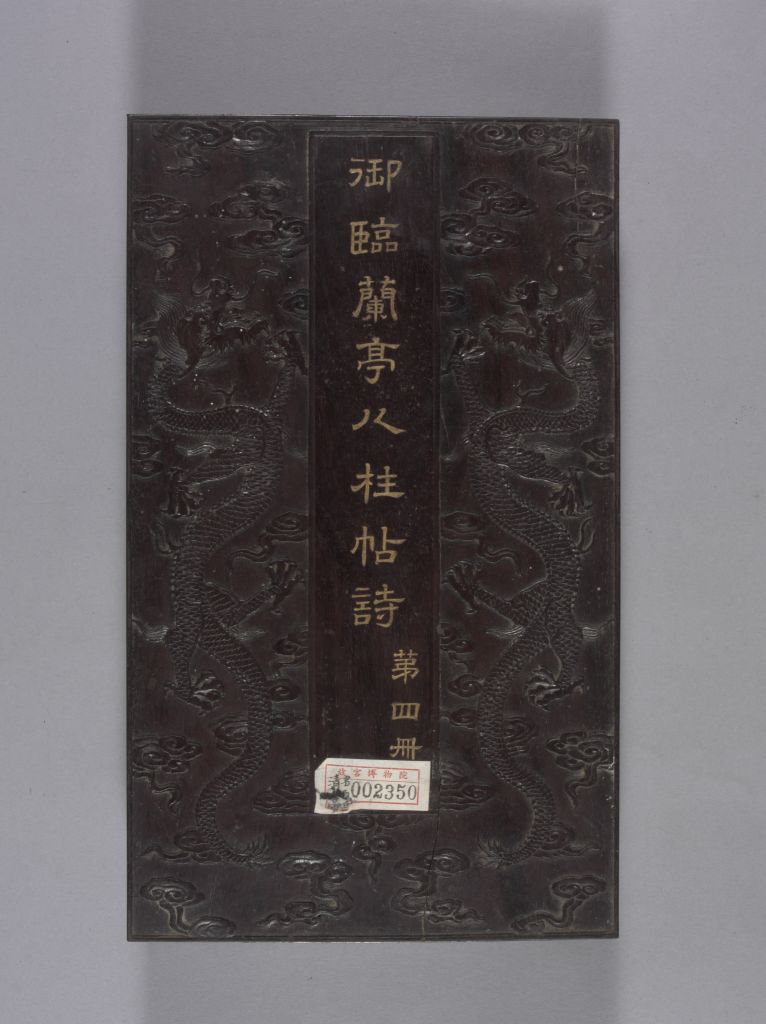 御臨蘭亭八柱帖詩
第四冊
故宮博物院
002350